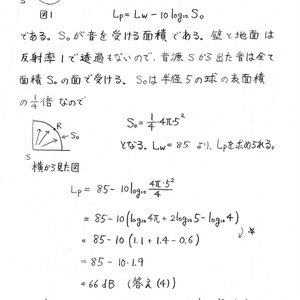 S
図1
Lp = Lw − 10 log₁₀ S₀
である。S₀が音を受ける面積である。壁と地面は
反射率1で透過もないので、音源Sから出た音は全て
面積S₀の面で受ける。S₀は半径5の球の表面積
の1/4倍なので
S₀ = 1/4・4π・5²
R
S₀
S
横から見た図
となる。Lw = 85 より、Lpを求められる。
Lp = 85 − 10 log₁₀ 4π・5²/4
= 85 − 10 (log₁₀ 4π + 2 log₁₀ 5 − log₁₀ 4)
= 85 − 10 (1.1 + 1.4 − 0.6)
= 85 − 10・1.9
= 66 dB (答え(4))